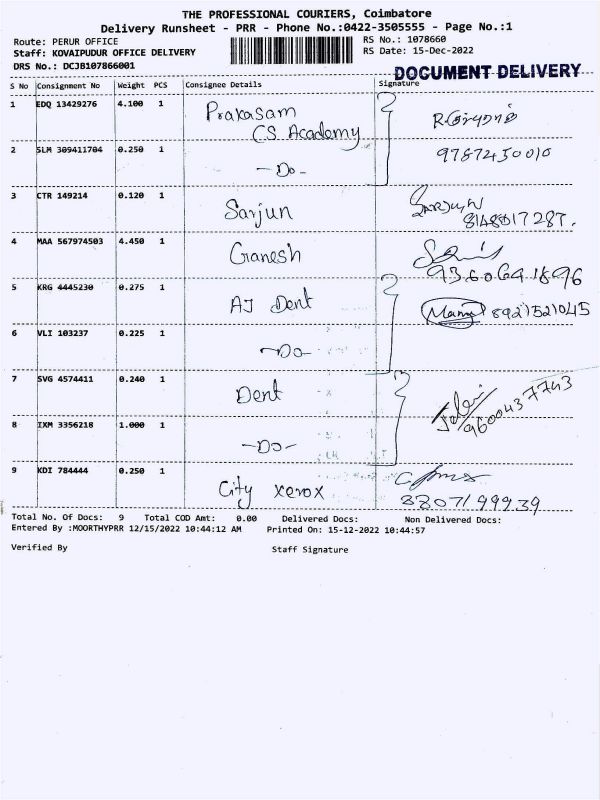 THE PROFESSIONAL COURIERS, Coimbatore
Delivery Runsheet - PRR - Phone No.:0422-3505555 - Page No.:1
Route: PERUR OFFICE RS No.: 1078660
Staff: KOVAIPUDUR OFFICE DELIVERY RS Date: 15-Dec-2022
DRS No.: DCJB107866001
DOCUMENT DELIVERY
S No Consignment No Weight PCS Consignee Details Signature
1 EDQ 13429276 4.100 1 Prakasam
CS Academy
2 SLM 309411704 0.250 1 -Do- 9787450010
3 CTR 149214 0.120 1 Sarjun
8148017287.
4 MAA 567974503 4.450 1 Ganesh
9360691896
5 KRG 4445230 0.275 1 AJ Dent 8921521045
6 VLI 103237 0.225 1 -Do-
7 SVG 4574411 0.240 1 Dent 9600437743
8 IXM 3356218 1.000 1 -Do-
9 KDI 784444 0.250 1 City xerox
Total No. Of Docs: 9 Total COD Amt: 0.00 Delivered Docs: Non Delivered Docs:
Entered By :MOORTHYPRR 12/15/2022 10:44:12 AM Printed On: 15-12-2022 10:44:57
Verified By Staff Signature